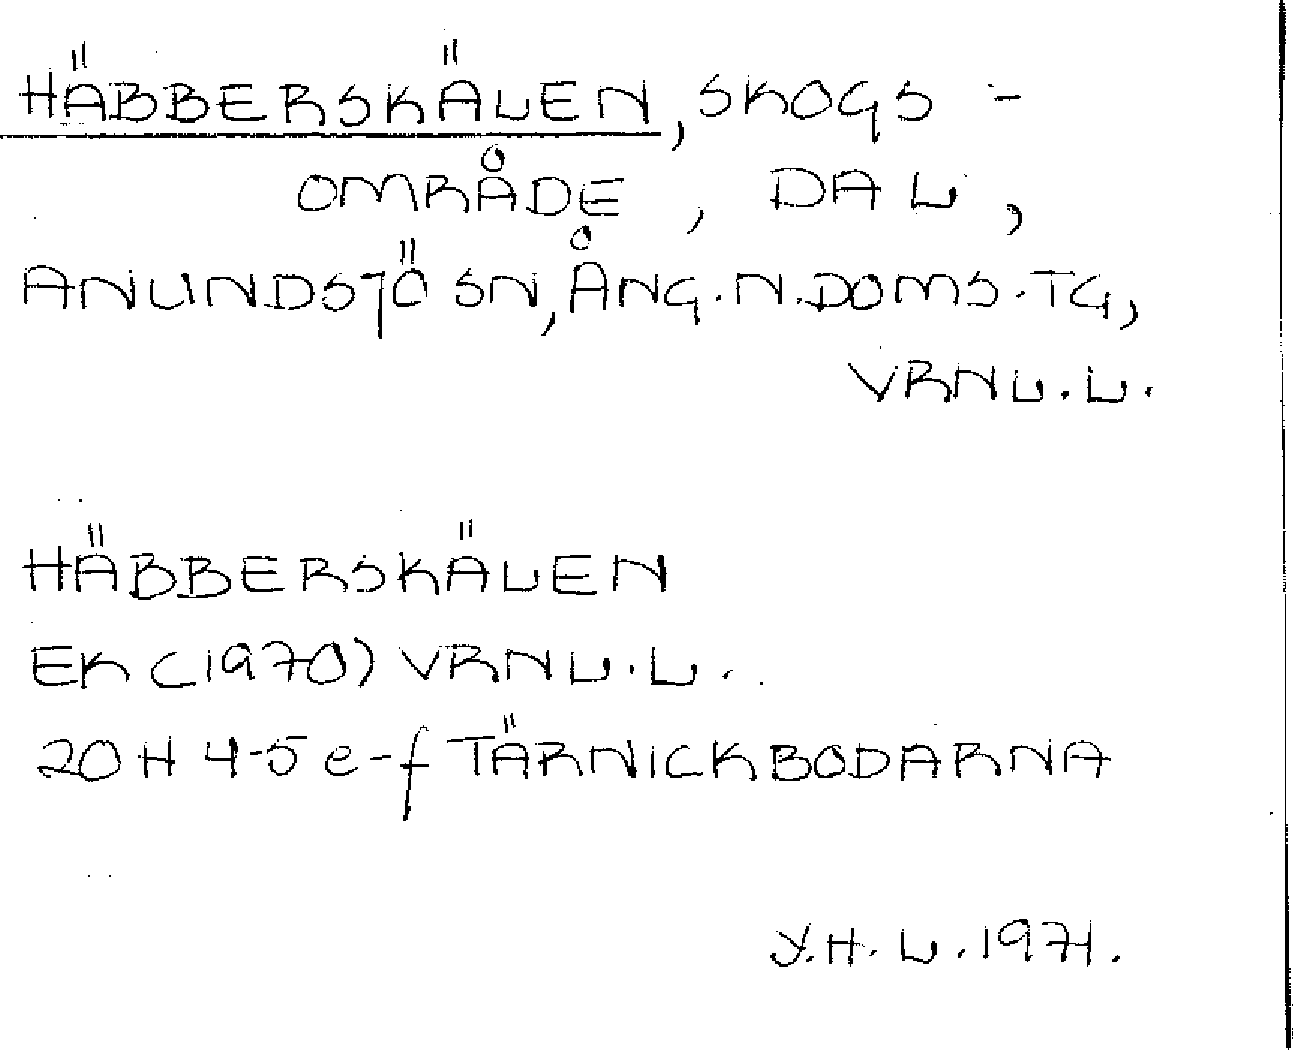 HÄBBERSKÄLEN, SKOGS-
OMRÅDE, DAL,
ANUNDSJÖ SN, ÅNG. N. DOMS. TG,
VRNL. L.
HÄBBERSKÄLEN
EK (1970) VRNL. L.
20 H 4-5 e-f TÄRNICKBODARNA
Y. H. L. 1971.